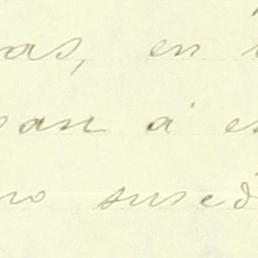 as, en
ean á e
no susedi